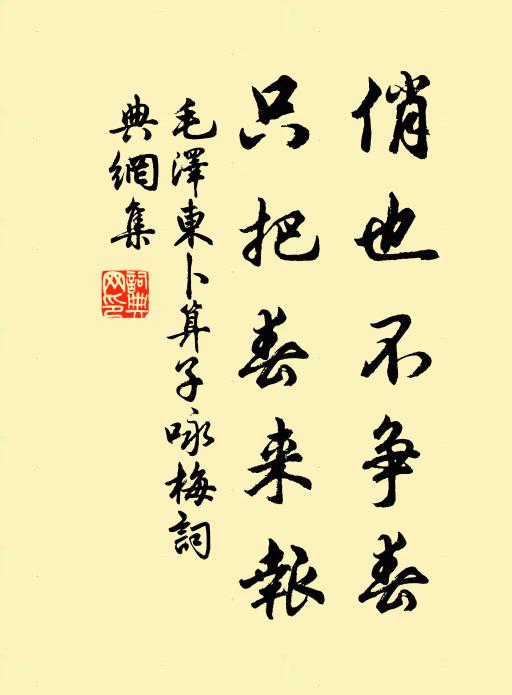 俏也不争春
只把春来報
毛澤東卜算子咏梅詞
典網集
詞典網印